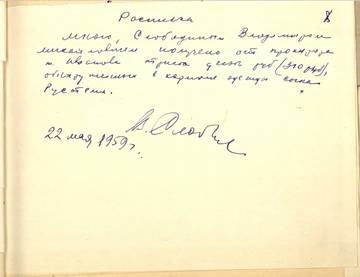 Расписка
Мною, Слободиным Владимиром
Михайловичем получено от прокурора
т. Иванова триста десять руб (310 руб),
обнаруженные в кармане одежды сына
Рустема.
22 мая 1959 г.
В. Слободин